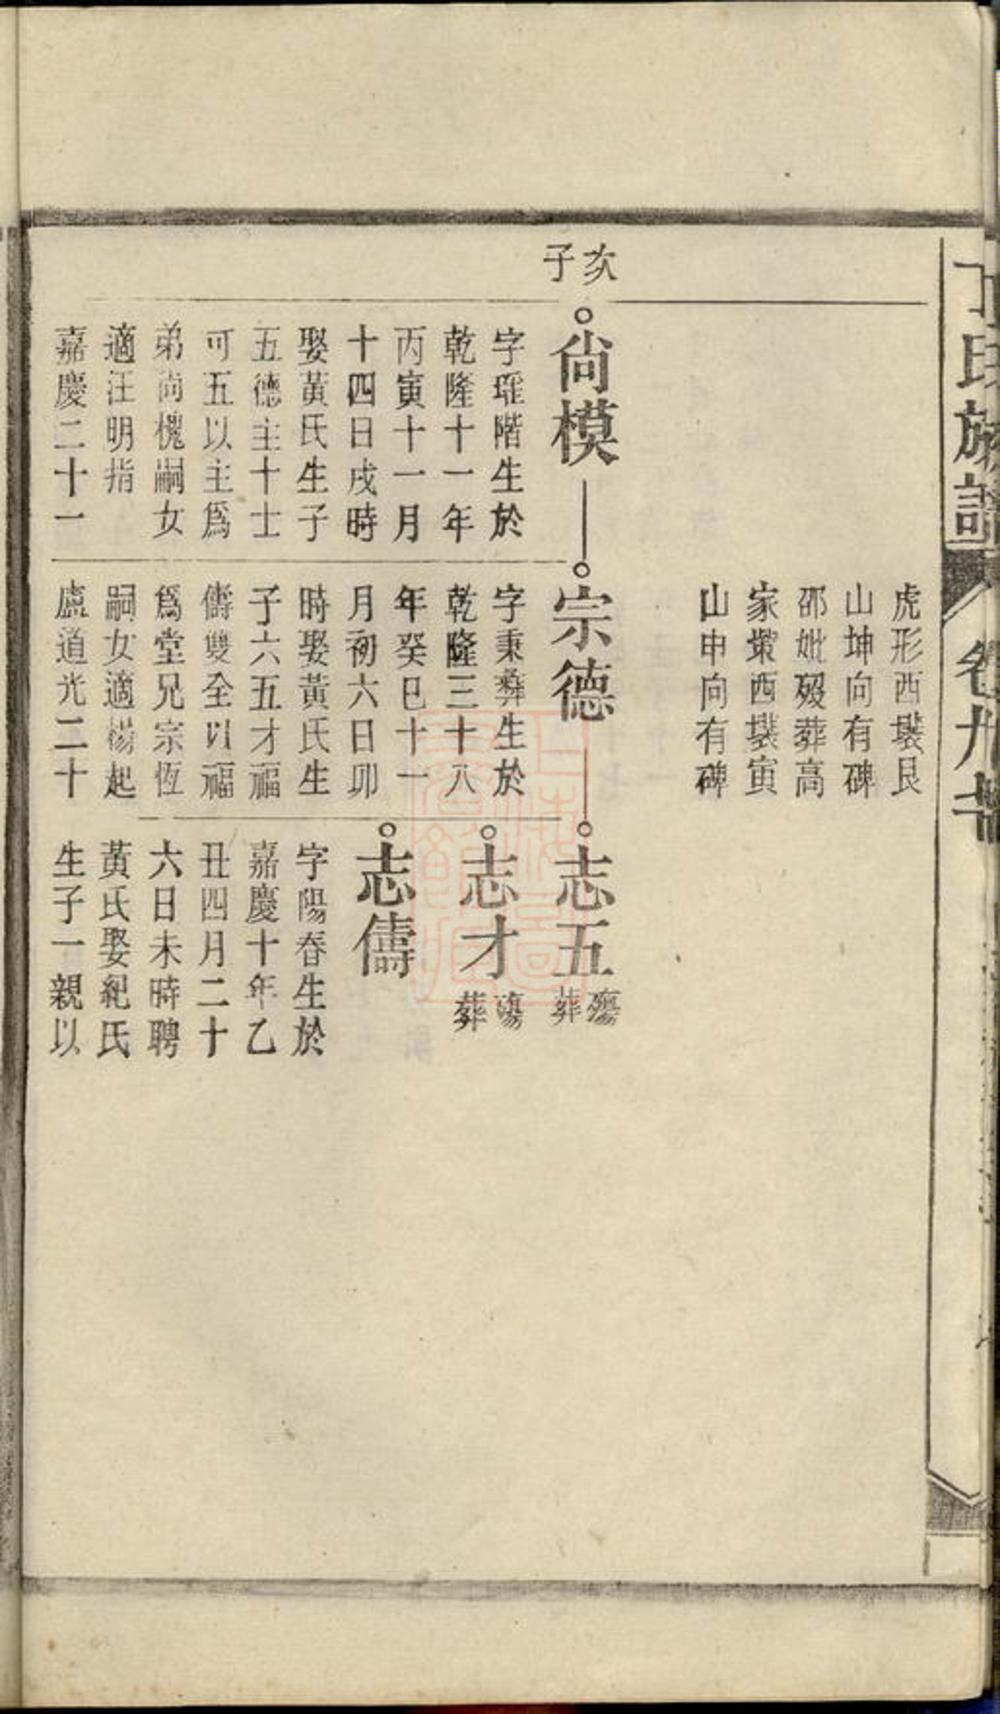 丁氏族譜
卷九
虎形西裝艮
山坤向有碑
邵妣歿葬高
家欎西裝寅
山申向有碑
次子
尙模
字琟階生於
乾隆十一年
丙寅十一月
十四日戌時
娶黃氏生子
五德主十士
可五以主爲
弟尙槐嗣女
適汪明指
嘉慶二十一
宗德
字秉彜生於
乾隆三十八
年癸巳十一
月初六日卯
時娶黃氏生
子六五才福
儔雙全以福
爲堂兄宗恆
嗣女適楊起
盧道光二十
志五
殤葬
志才
殤葬
志儔
字陽春生於
嘉慶十年乙
丑四月二十
六日未時聘
黃氏娶紀氏
生子一親以